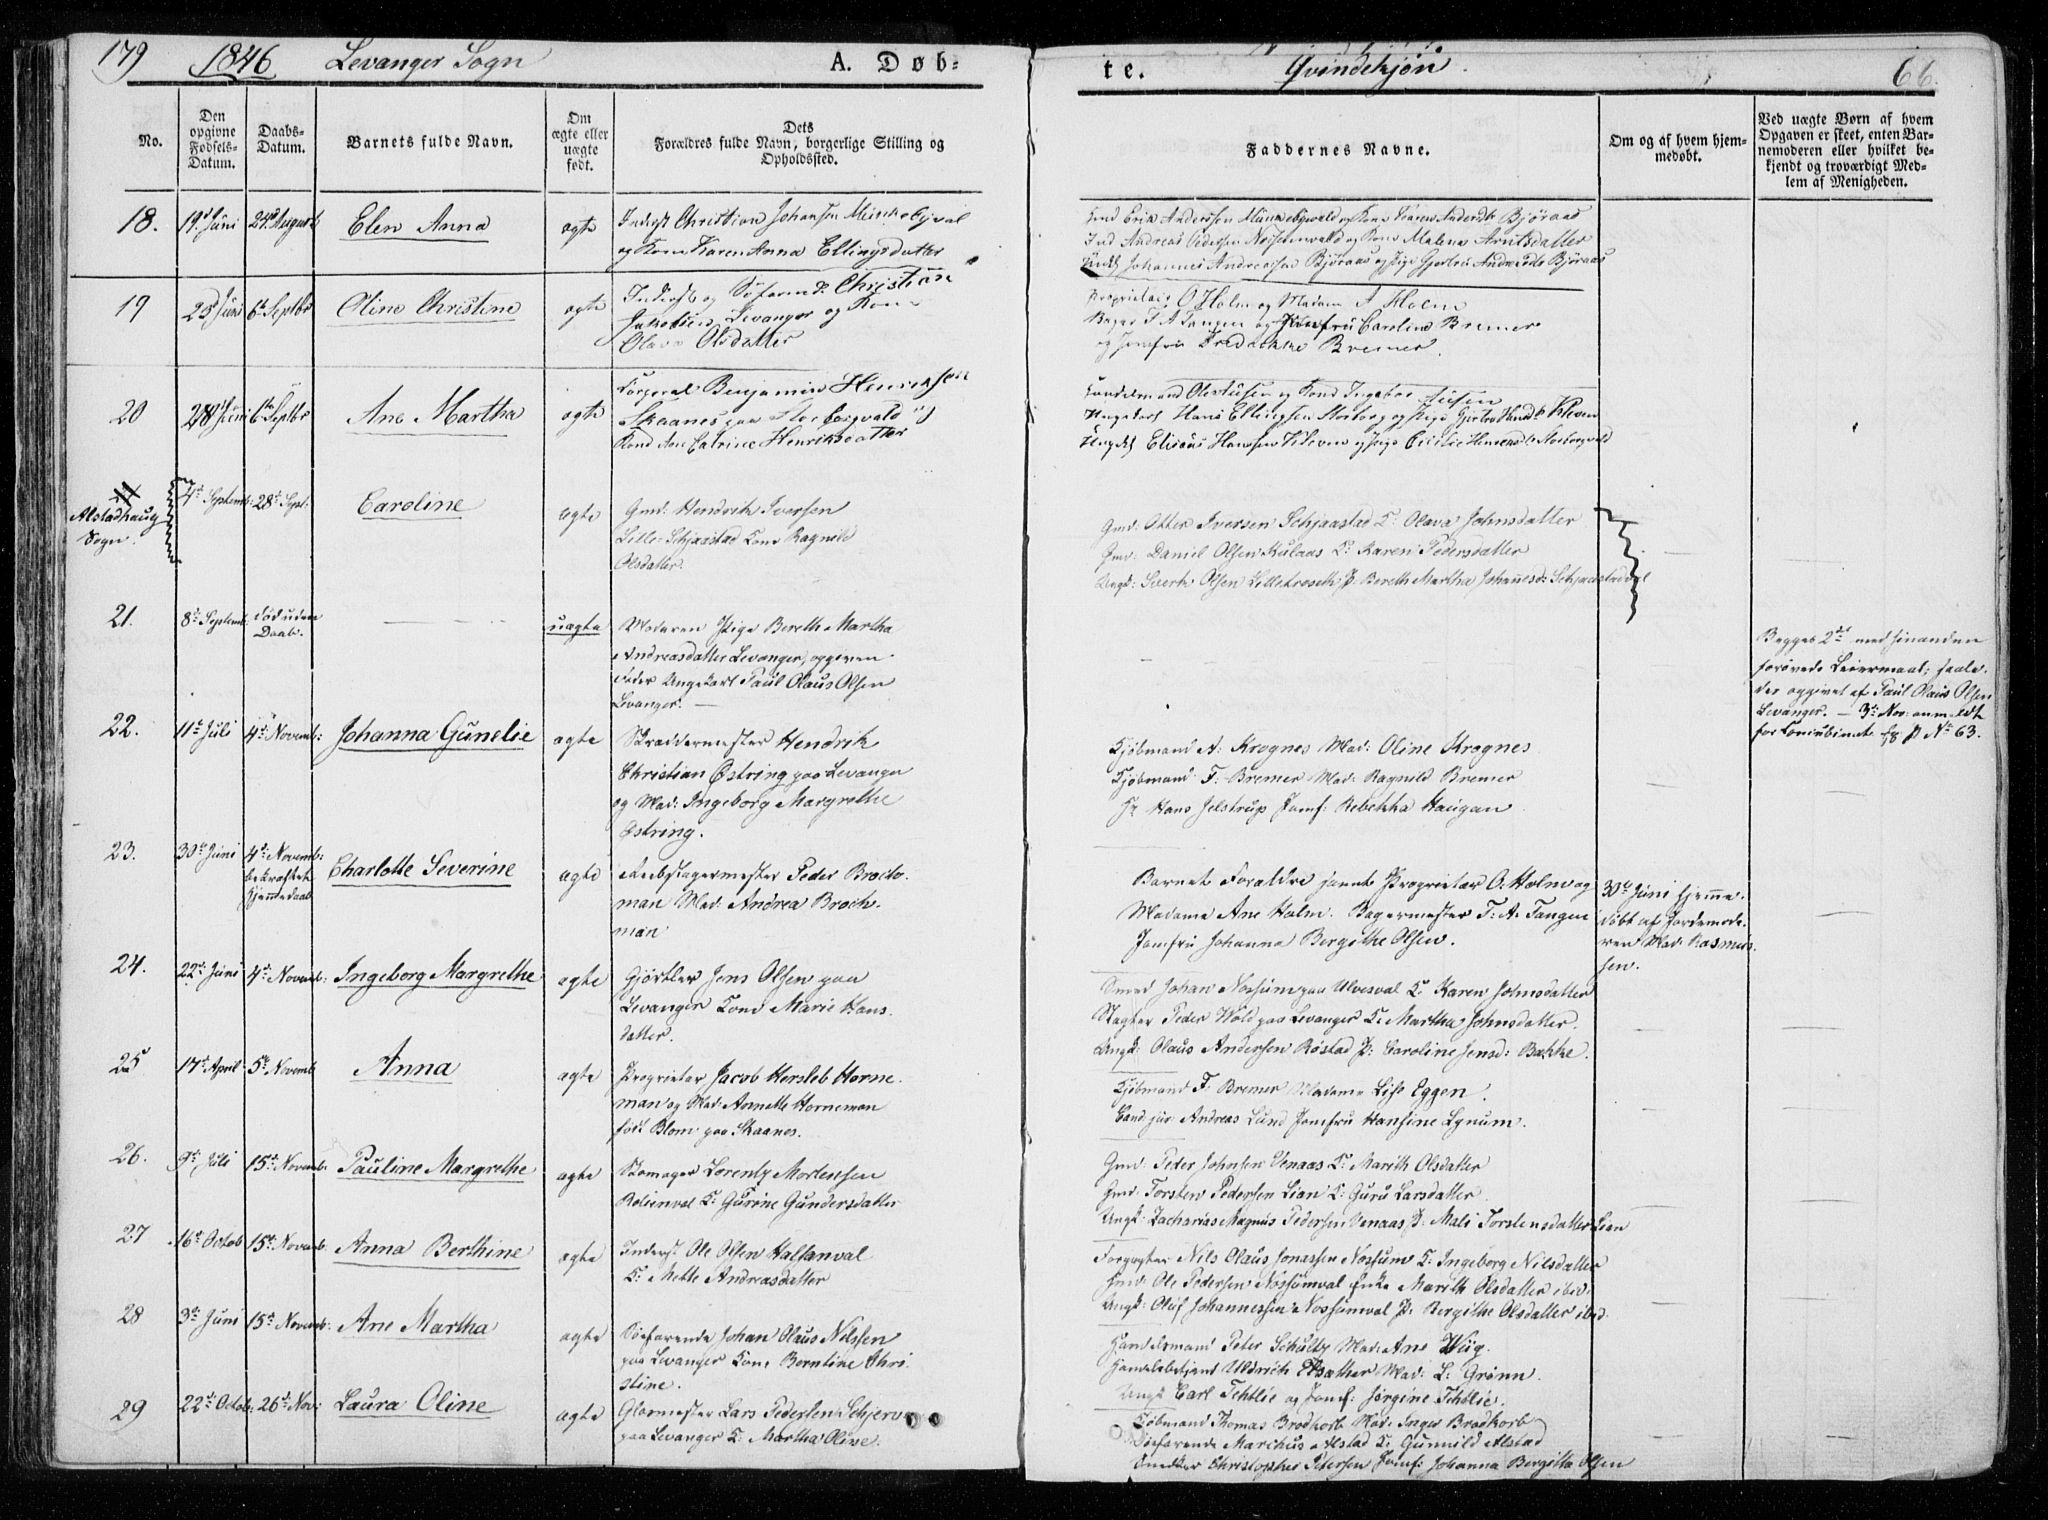 179 1846 Levanger Sogn A. Døb- te. Qvindekjøn. 66.
No.
Den opgivne Fødsels-Datum.
Daabs-Datum.
Barnets fulde Navn.
Om ægte eller uægte født.
Dets Forældres fulde Navn, borgerlige Stilling og Opholdssted.
Faddernes Navne.
Om og af hvem hjemmedøbt.
Ved uægte Børn af hvem Opgaven er skeet, enten Barnemoderen eller hvilket bekjendt og troværdigt Medlem af Menigheden.
18. 19de Juni 24de August Elen Anna ægte
Inderst Christian Johansen Munkebyval
og Kone Karen Anna Ellingsdatter
Gmd Erik Andersen Munkebyvald og Kone Karen Andersdt Bjøraas
Ind Andreas Pedersen Nossumvald og Kone Malena Arntsdatter
Ungk Johannes Andreassen Bjøraas og Pige Gjertru Andreasdt Bjøraas
19 25 Juni 6te Septbr Oline Christine ægte
Inderst og Søfarende Christian
Jakobsen Levanger og Kone
Olava Olsdatter
Proprietair O Holm og Madam A Holm
Bager T A Tangen og Jomfru Caroline Bremer
og Jomfru Fredrikke Bremer.
20 28 Juni 6te Septbr Ane Martha ægte
Corporal Benjamin Henriksen
Skaanes paa Storborgvald og
Kone Ane Catrine Henriksdatter
Ungekarl Hans Ellingsen Storborg og Pige Gjertrud Hansdt Kleven
Ungk Elisæus Hansen Kleven og Pige
Alstadhaug Sogn. 4de Septemb: 28de Sept: Caroline ægte
Gmd: Hendrik Iversen
Lille-Schjaastad Kone Ragnild
Olsdatter.
Gmd: Otter Iversen Schjaastad K: Olava Johnsdatter
Gmd: Daniel Olsen Kulaas K: Karen Pedersdatter
Ungk: Sivert Olsen Lilletroseth P. Bereth Martha Johannesd: Schjaastadval
21. 8de Septemb: død uden Daab. uægte
Moderen Pige Bereth Martha
Andreasdatter Levanger, opgiven
Fader Ungekarl Paul Olaus Olsen
Levanger.
Begges 2det med hinanden
forøvede Leiermaal; saale-
des opgivet af Paul Olaus Olsen
Levanger. — 3de Nov: anmeldt
for Concubinate P No 63.
22. 11te Juli 4de Novemb: Johanna Gunelie ægte
Skræddermester Hendrik
Christian Østring paa Levanger
og Mad: Ingeborg Margrethe
Østring.
Kjøbmand A: Krognes Mad: Oline Krognes
Kjøbmand F: Bremer Mad: Ragnild Bremer
Hr Hans Jelstrup Jomf: Rebekka Haugan
23. 30te Juni 4de Novemb: bekræftet Hjemmedaab Charlotte Severine ægte
Rebslagermester Peder Brock-
man Mad: Andrea Brock-
man
Barnets Forældre samt Proprietær O: Holm og
Madame Ane Holm. Bagermester T: A: Tangen
Jomfru Johanna Bergithe Olsen.
30te Juni hjemme-
døbt af Jordemode-
ren Mad: Rasmus-
sen.
24. 22de Juni 4de Novemb: Ingeborg Margrethe ægte
Gjørtler Jens Olsen paa
Levanger Kone Marie Hans-
datter.
Smed Johan Nossum paa Ulvesval K: Karen Johnsdatter
Slagter Peder Wold paa Levanger K: Martha Johnsdatter.
Ungk: Olaus Andersen Røstad P: Caroline Jensd: Bakke.
25 17de April 5te Novemb Anna ægte
Proprietær Jacob Hersleb Horne-
man og Mad: Annette Horneman
født Blom paa Skaanes.
Kjøbmand F: Bremer Madame Lise Eggen.
Cand jur: Andreas Lund Jomfru Hansine Lynum.
26. 9de Juli 15de Novemb: Pauline Margrethe ægte
Skomager Lorentz Mortensen
K: Gurine Gundersdatter
Gmd: Peder Johnsen Venaas K: Marith Olsdatter
Gmd: Torsten Pedersen Lian K: Guru Larsdatter.
Ungk: Zacharias Magnus Pedersen Venaas P: Mali Torstensdatter Lian
27 16de Octob 15de Novemb: Anna Berthine ægte
Inderst Ole Olsen Hallanval
K: Mette Andreasdatter
Forgagter Nils Olaus Jonassen Nossum K: Ingeborg Nilsdatter
Gmd: Ole Pedersen Nossumval Enke Marith Olsdatter ibid:
Ungk: Oluf Johannessen Nossumval P: Bergithe Olsdatter ibid.
28 3de Juni 15de Novemb: Ane Martha ægte
Søefarende Johan Olaus Nilssen
paa Levanger Kone Berntine Chri-
stine.
Handelsmand Peter Schultz Mad: Ane Wiig.
Handelsbetjent Uldrich Mad: L: Grønn.
Ungk Carl Tehtlie og Jomf: Jørgine Tehtlie.
29 22de Octob: 26de Nov: Laura Oline ægte
Glarmester Lars Pedersen Schjerv
paa Levanger K: Martha Oline.
Kjøbmand Thomas Brodkorb Mad: Inger Brodkorb
Søefarende Marchus Alstad K: Gunnild Alstad
Snedker Christopher Petersen Jomf: Johanna Bergitta Olsen